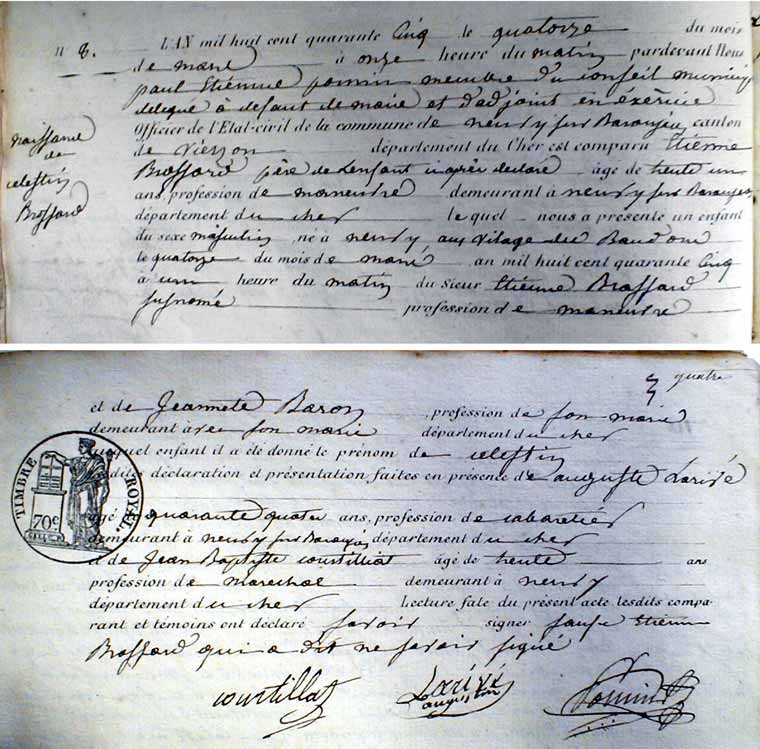 N° 8.
L'AN mil huit cent quarante Cinq le quatorze du mois
de mars à onze heure du matin pardevant Nous
paul Etienne pomin membre du conseil municip
delegué à defaut de maire et d'adjoint en éxercice
Officier de l'Etat-civil de la commune de neuvy sur Barangeon canton
de Vierzon département du Cher est comparu Etienne
Brossard père de Lenfant ci après declaré âgé de trente un
ans, profession de maneuvre demeurant à neuvy sur Barangeon
département du cher le quel nous a présenté un enfant
du sexe masculin né à neuvy, aux vilage des
le quatorze du mois de mars an mil huit cent quarante Cinq
à un heure du matin du sieur Etienne Brossard
susnomé profession de maneuvre
naissance
de
celestin
Brossard
quatre
et de Jeannete Baron profession de son marie
demeurant avec son marie département du cher
auquel enfant il a été donné le prénom de celestin
lesdites déclaration et présentation faites en présence de auguste Larivé
âgé quarante quatre ans, profession de cabaretier
demeurant à neuvy sur Barangeon département du cher
et de Jean Baptiste courtilliat âgé de trente ans
profession de marechal demeurant à neuvy
département du cher Lecture faite du présent acte lesdits compa-
rant et témoins ont déclaré savoir signer saufe Etienne
Brossard qui a dit ne savoir signé
courtillat Larivé
auguste
pomin
TIMBRE ROYAL
70c